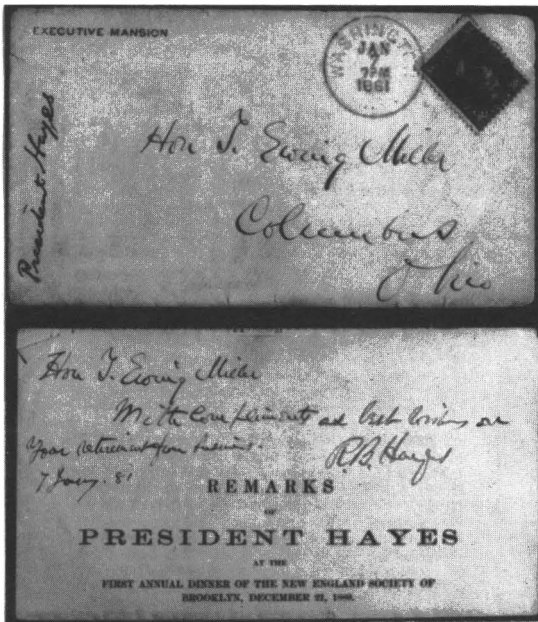 EXECUTIVE MANSION
WASHINGTON
JAN
7
7PM
1881
President Hayes
Hon T. Ewing Miller
Columbus
Ohio
Hon T. Ewing Miller
With Compliments and best wishes on
your retirement from business.
R.B. Hayes
7 Jany. 81
REMARKS
OF
PRESIDENT HAYES
AT THE
FIRST ANNUAL DINNER OF THE NEW ENGLAND SOCIETY OF
BROOKLYN, DECEMBER 21, 1880.